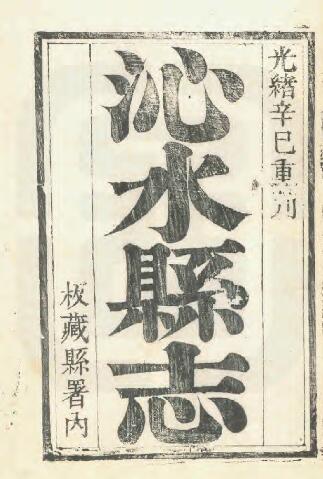 光緒辛巳重刋
沁水縣志
板藏縣署內